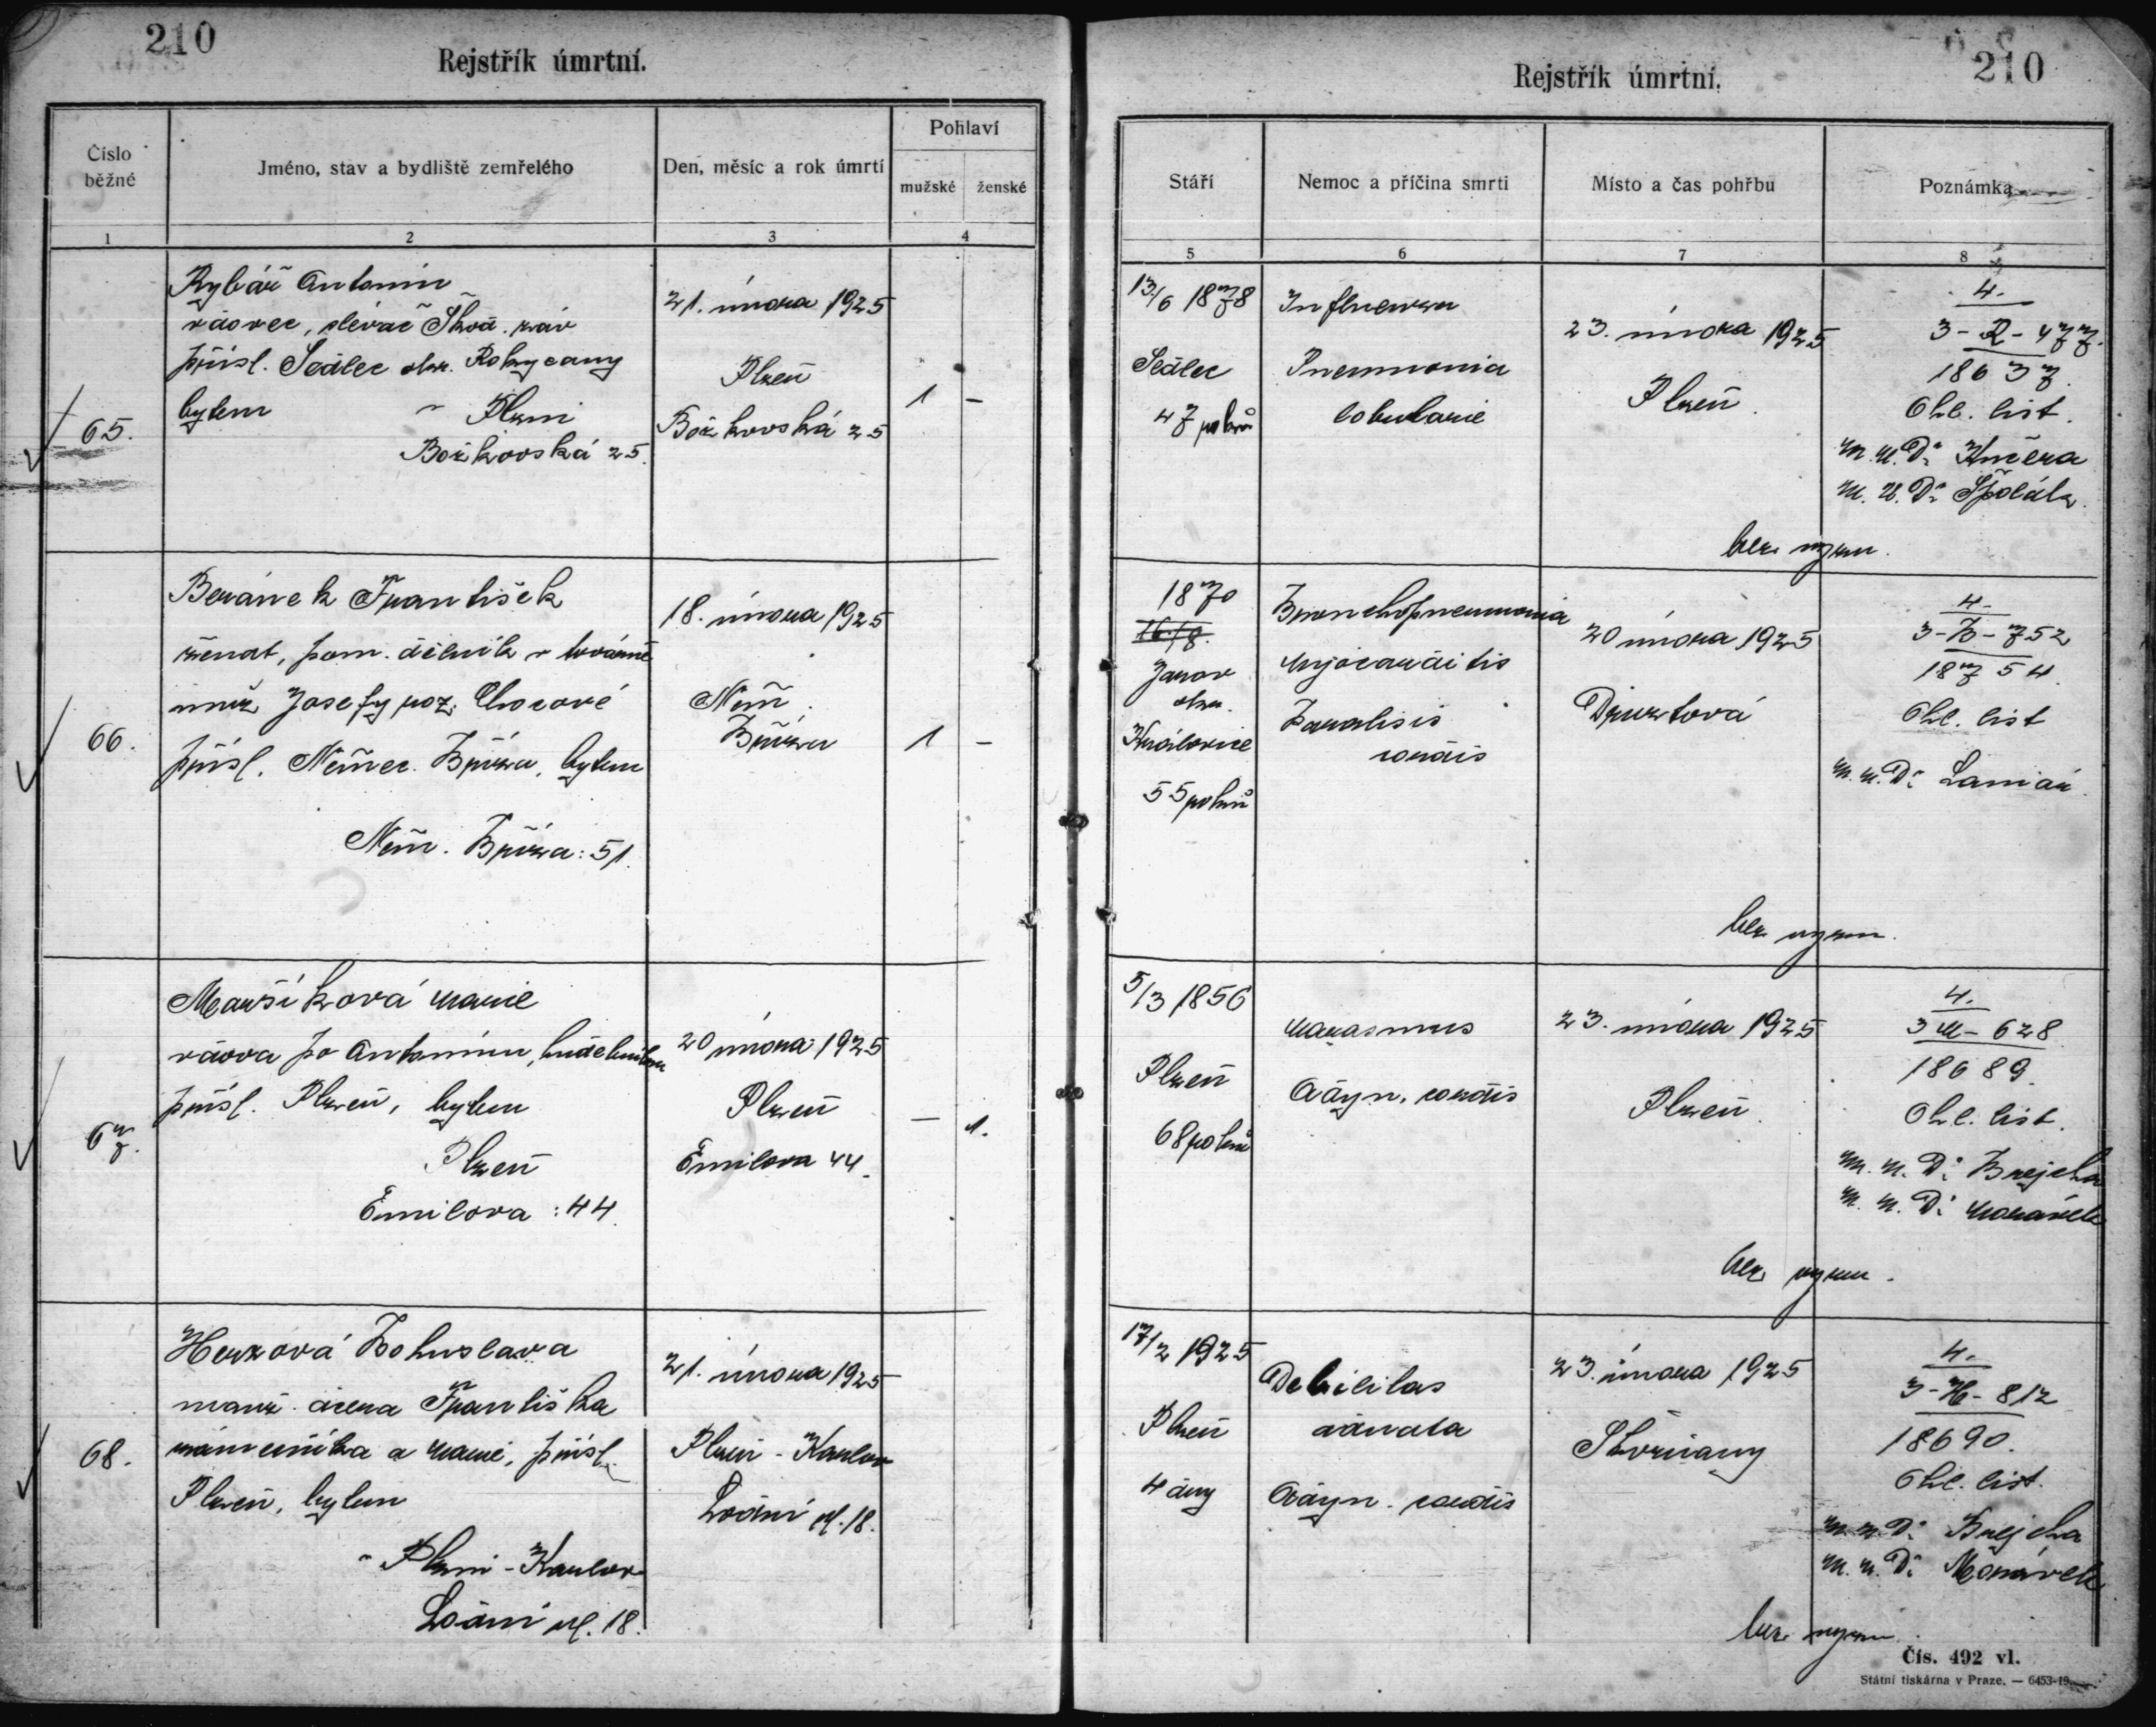 210
Rejstřík úmrtní.
Číslo běžné
Jméno, stav a bydliště zemřelého
Den, měsíc a rok úmrtí
Pohlaví
mužské
ženské
1
2
3
4
65.
Rybář Antonín
vdovec, slévač Škod. záv
přísl. Sedlec okr. Rokycany
bytem v Plzni
Božkovská 25.
21. února 1925
Plzeň
Božkovská 25
1 –
66.
Beránek František
ženat, pom. dělník v továrně
Josefy roz.
přísl. Němec. Bříza, bytem
Něm. Bříza: 51.
18. února 1925
Něm.
Bříza
1 –
67.
Maršíková Marie
vdova po Antonínu, hudebníkem
přísl. Plzeň, bytem
Plzeň
Emilova: 44.
20 února 1925
Plzeň
Emilova 44.
– 1.
68.
Herzová Bohuslava
manž. dcera Františka
zámečníka a Marie, přísl.
Plzeň, bytem
v Plzni - Karlov
Lodní ul. 18.
21. února 1925
Plzeň - Karlov
Lodní ul. 18.
Rejstřík úmrtní.
210
Stáří
Nemoc a příčina smrti
Místo a čas pohřbu
Poznámka
5
6
7
8
13/6 1878
Sedlec
47 roků
Influenza
Pneumonia
lobularie
23. února 1925
Plzeň.
4.
3 - R - 477.
18637.
Ohl. list.
M.U.Dr. Kučera
M.U.Dr. Špelák.
bez vyzn.
1870
16/8.
Janov
okr.
Kralovice
55 roků
Bronchopneumonia
Myocarditis
Paralisis
cordis
20 února 1925
Druztová
4.
3 - B - 752
18754.
Ohl. list
M.U.Dr. Lamiač.
bez vyzn.
5/3 1856
Plzeň
68 roků
Marasmus
Adyn. cordis
23. února 1925
Plzeň.
4.
3 M - 628
18689.
Ohl. list.
M.U.Dr. Brejcha
M.U.Dr. Morávek
bez vyzn.
17/2 1925
Plzeň
4 dny
Debilitas
adnata
Adyn. cordis
23. února 1925
Skvrňany
4.
3 - H - 812
18690.
Ohl. list.
M.U.Dr. Brejcha
M.U.Dr. Morávek
bez vyzn.
Čís. 492 vl.
Státní tiskárna v Praze. — 6453-19